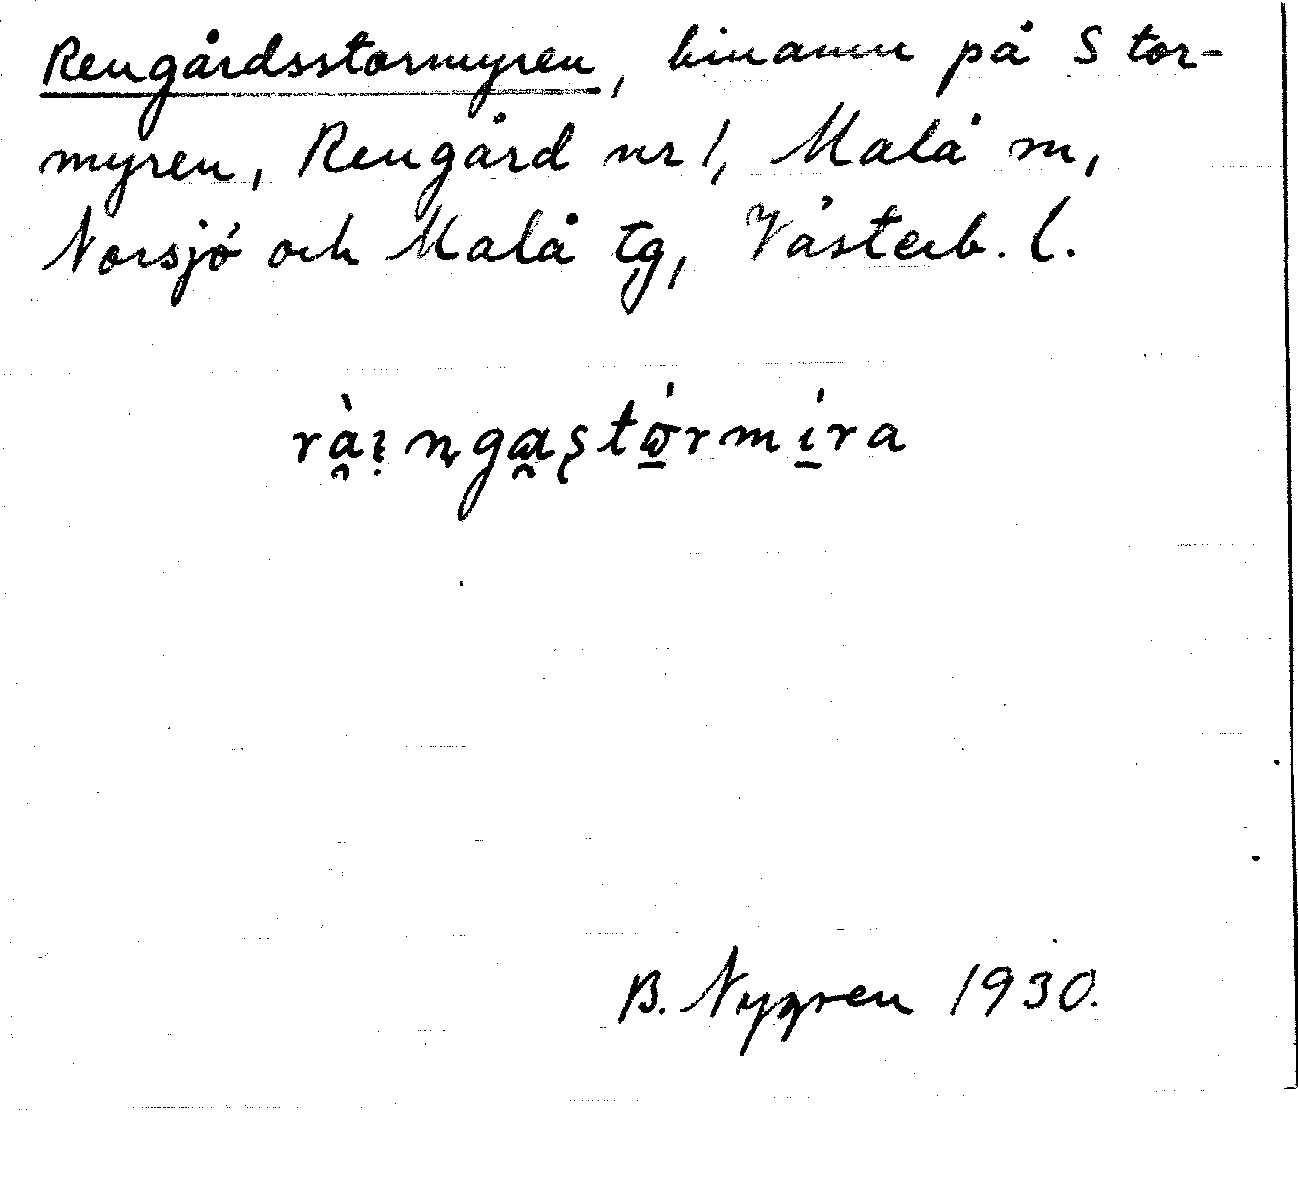 Rengårdsstormyren, binamn på Stor-
myren, Rengård nr 1, Malå m,
Norsjö och Malå tg, Västerb. l.
B. Nygren 1930.